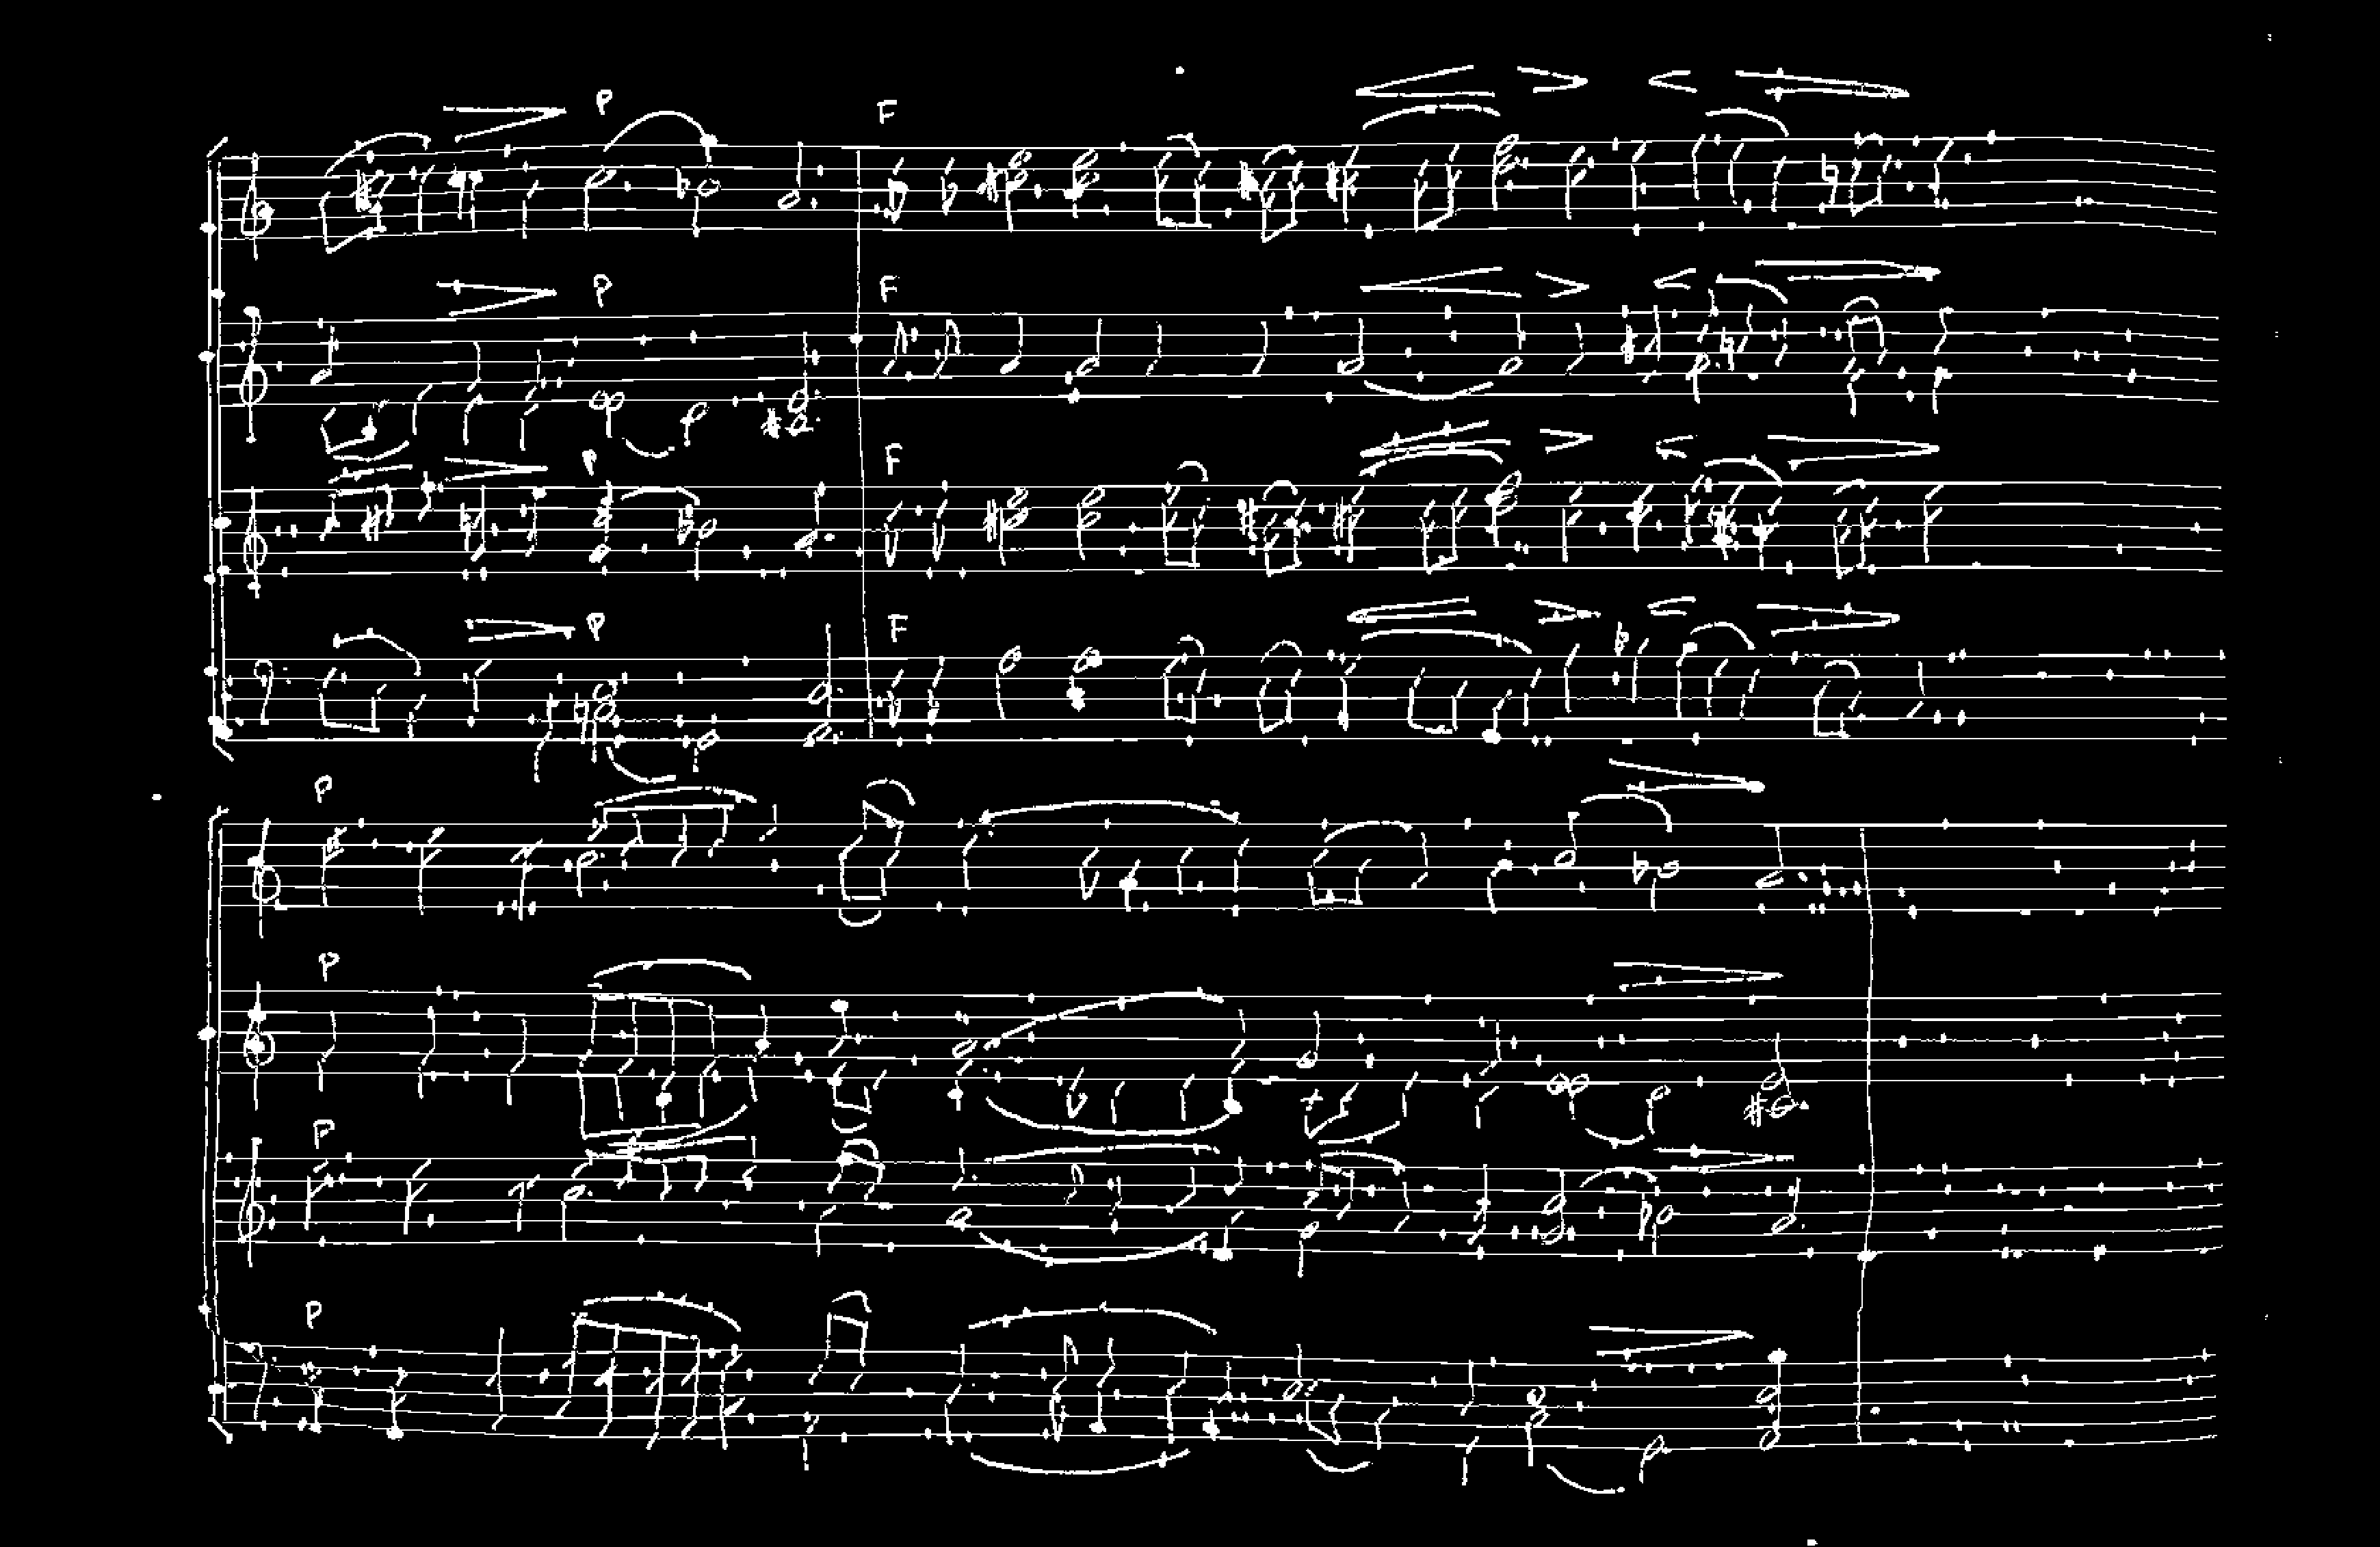 P F
P F
P F
P F
P
P
P
P